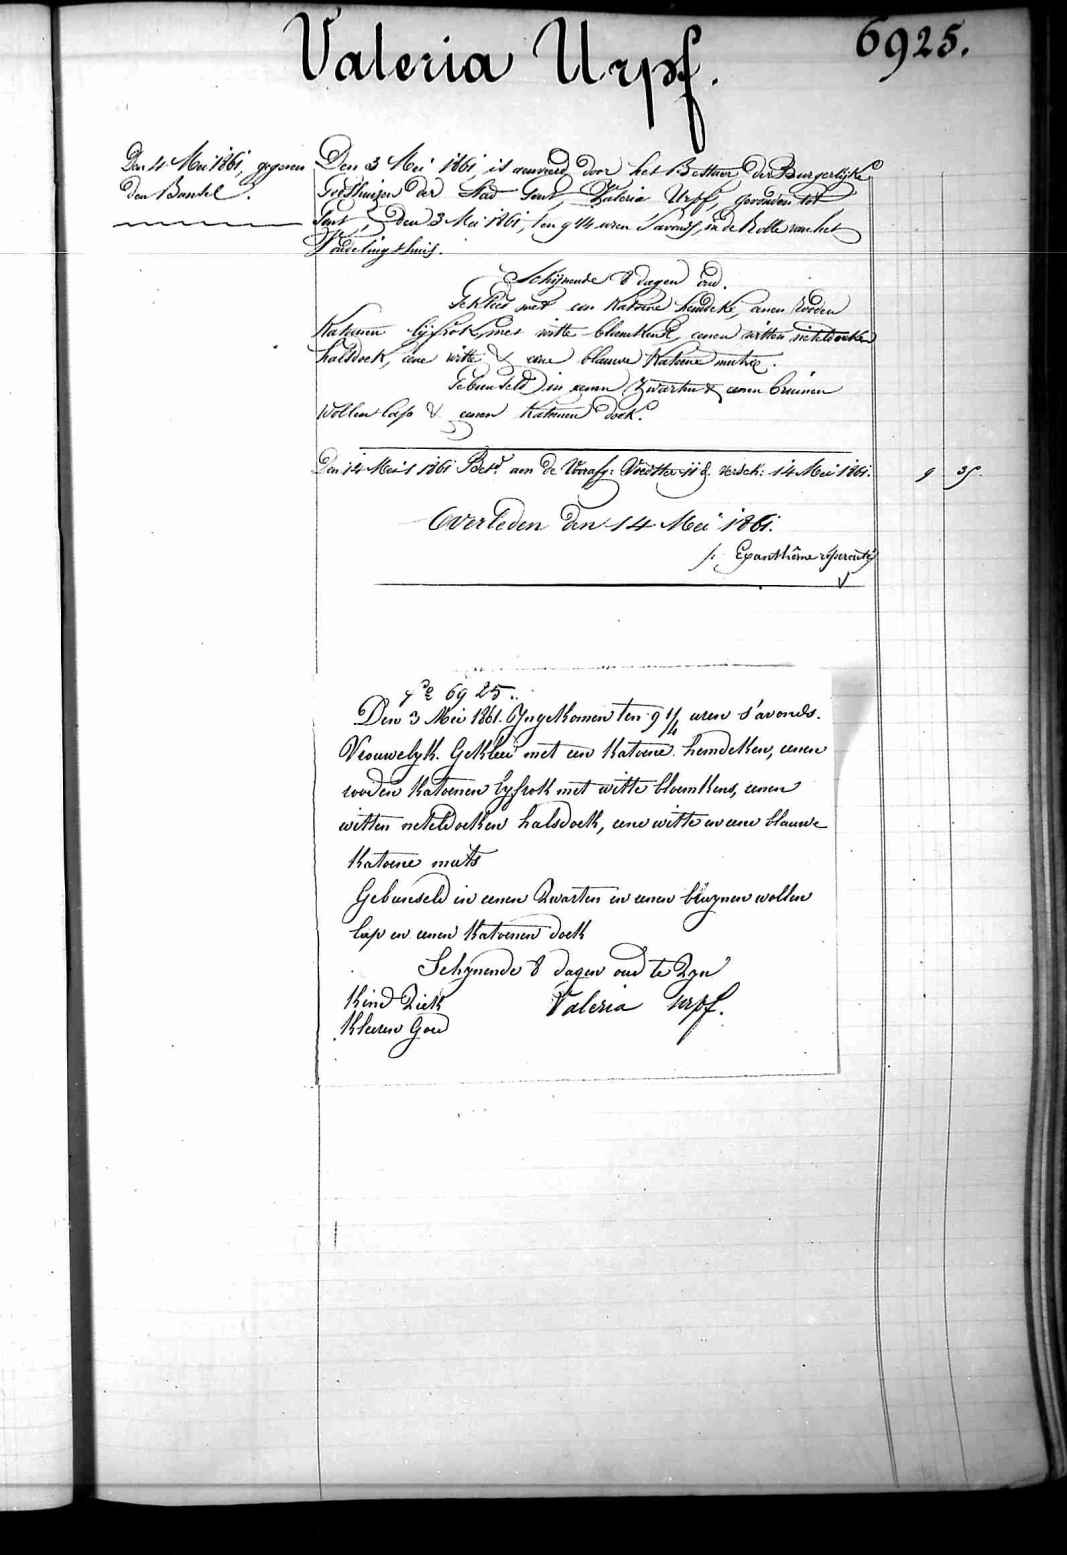 Valeria Urpf.
6925.
Den 4 Mei 1861, gegeven
den Bandel.
Den 3 Mei 1861, is aenveerd door het Bestuer der Burgerlijke
Godshuizen der Stad Gent, Valeria Urpf, gevonden tot
Gent, den 3 Mei 1861, ten 9 1/4 uren s'avonds, in de Rolle van het
Vondelingshuis.
Schijnende 8 dagen oud.
Gekleed met een katoene hemdeke, eenen rooden
katoenen lijfrok, met witte blomkens, eenen witten neteldoeken
halsdoek, eene witte & eene blauwe katoene muts.
Gebunseld in eenen zwarten & eenen bruinen
wollen lap & eenen katoenen doek.
Den 14 Mei 1861 Bet. aen de 14 Mei 1861. 9 35
Overleden den 14 Mei 1861.
Exanthème répercuté
6925.
Den 3 Mei 1861. Ingekomen ten 9 1/4 uren s'avonds.
Vrouwelyk. Gekleed met een katoene hemdeken, eenen
rooden katoenen lyfrok met witte bloemkens, eenen
witten neteldoeken halsdoek, eene witte en eene blauwe
katoene muts
Gebunseld in eenen zwarten en eenen bruynen wollen
lap en eenen katoenen doek
Schynende 8 dagen oud te zyn
Kind Ziek Valeria Urpf.
Kleeren Goed